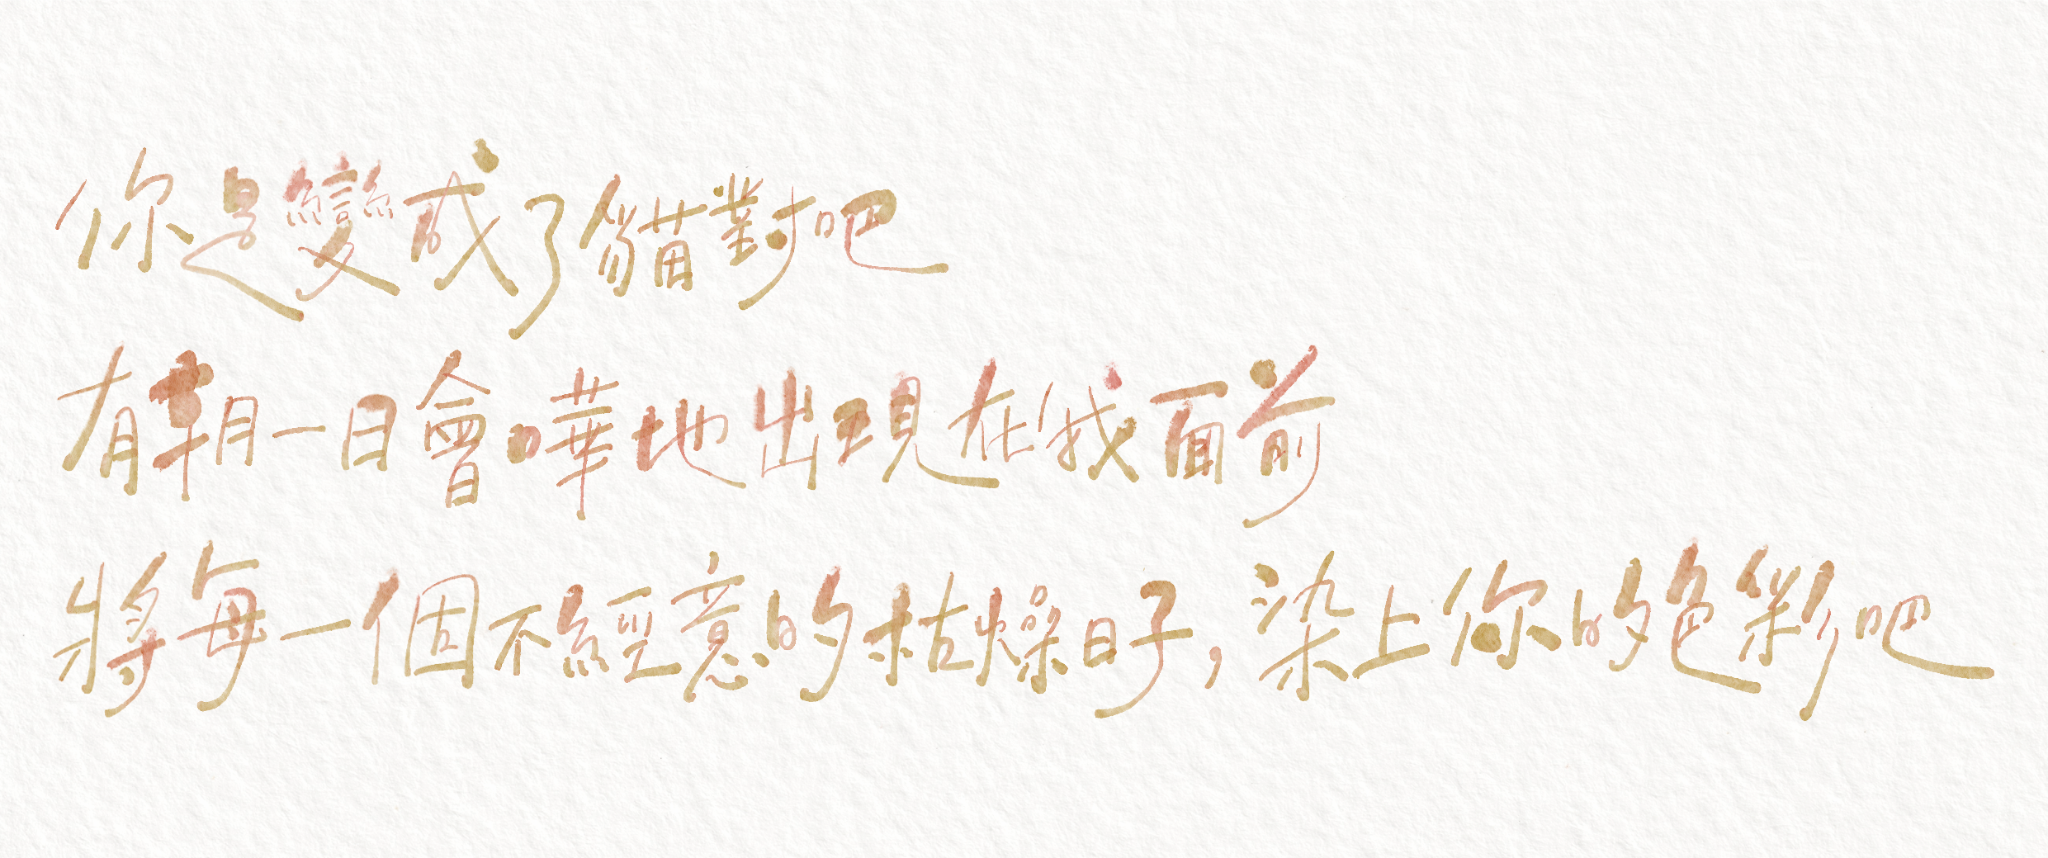 你是變成了貓對吧
有朝一日會嘩地出現在我面前
將每一個不經意的枯燥日子，染上你的色彩吧